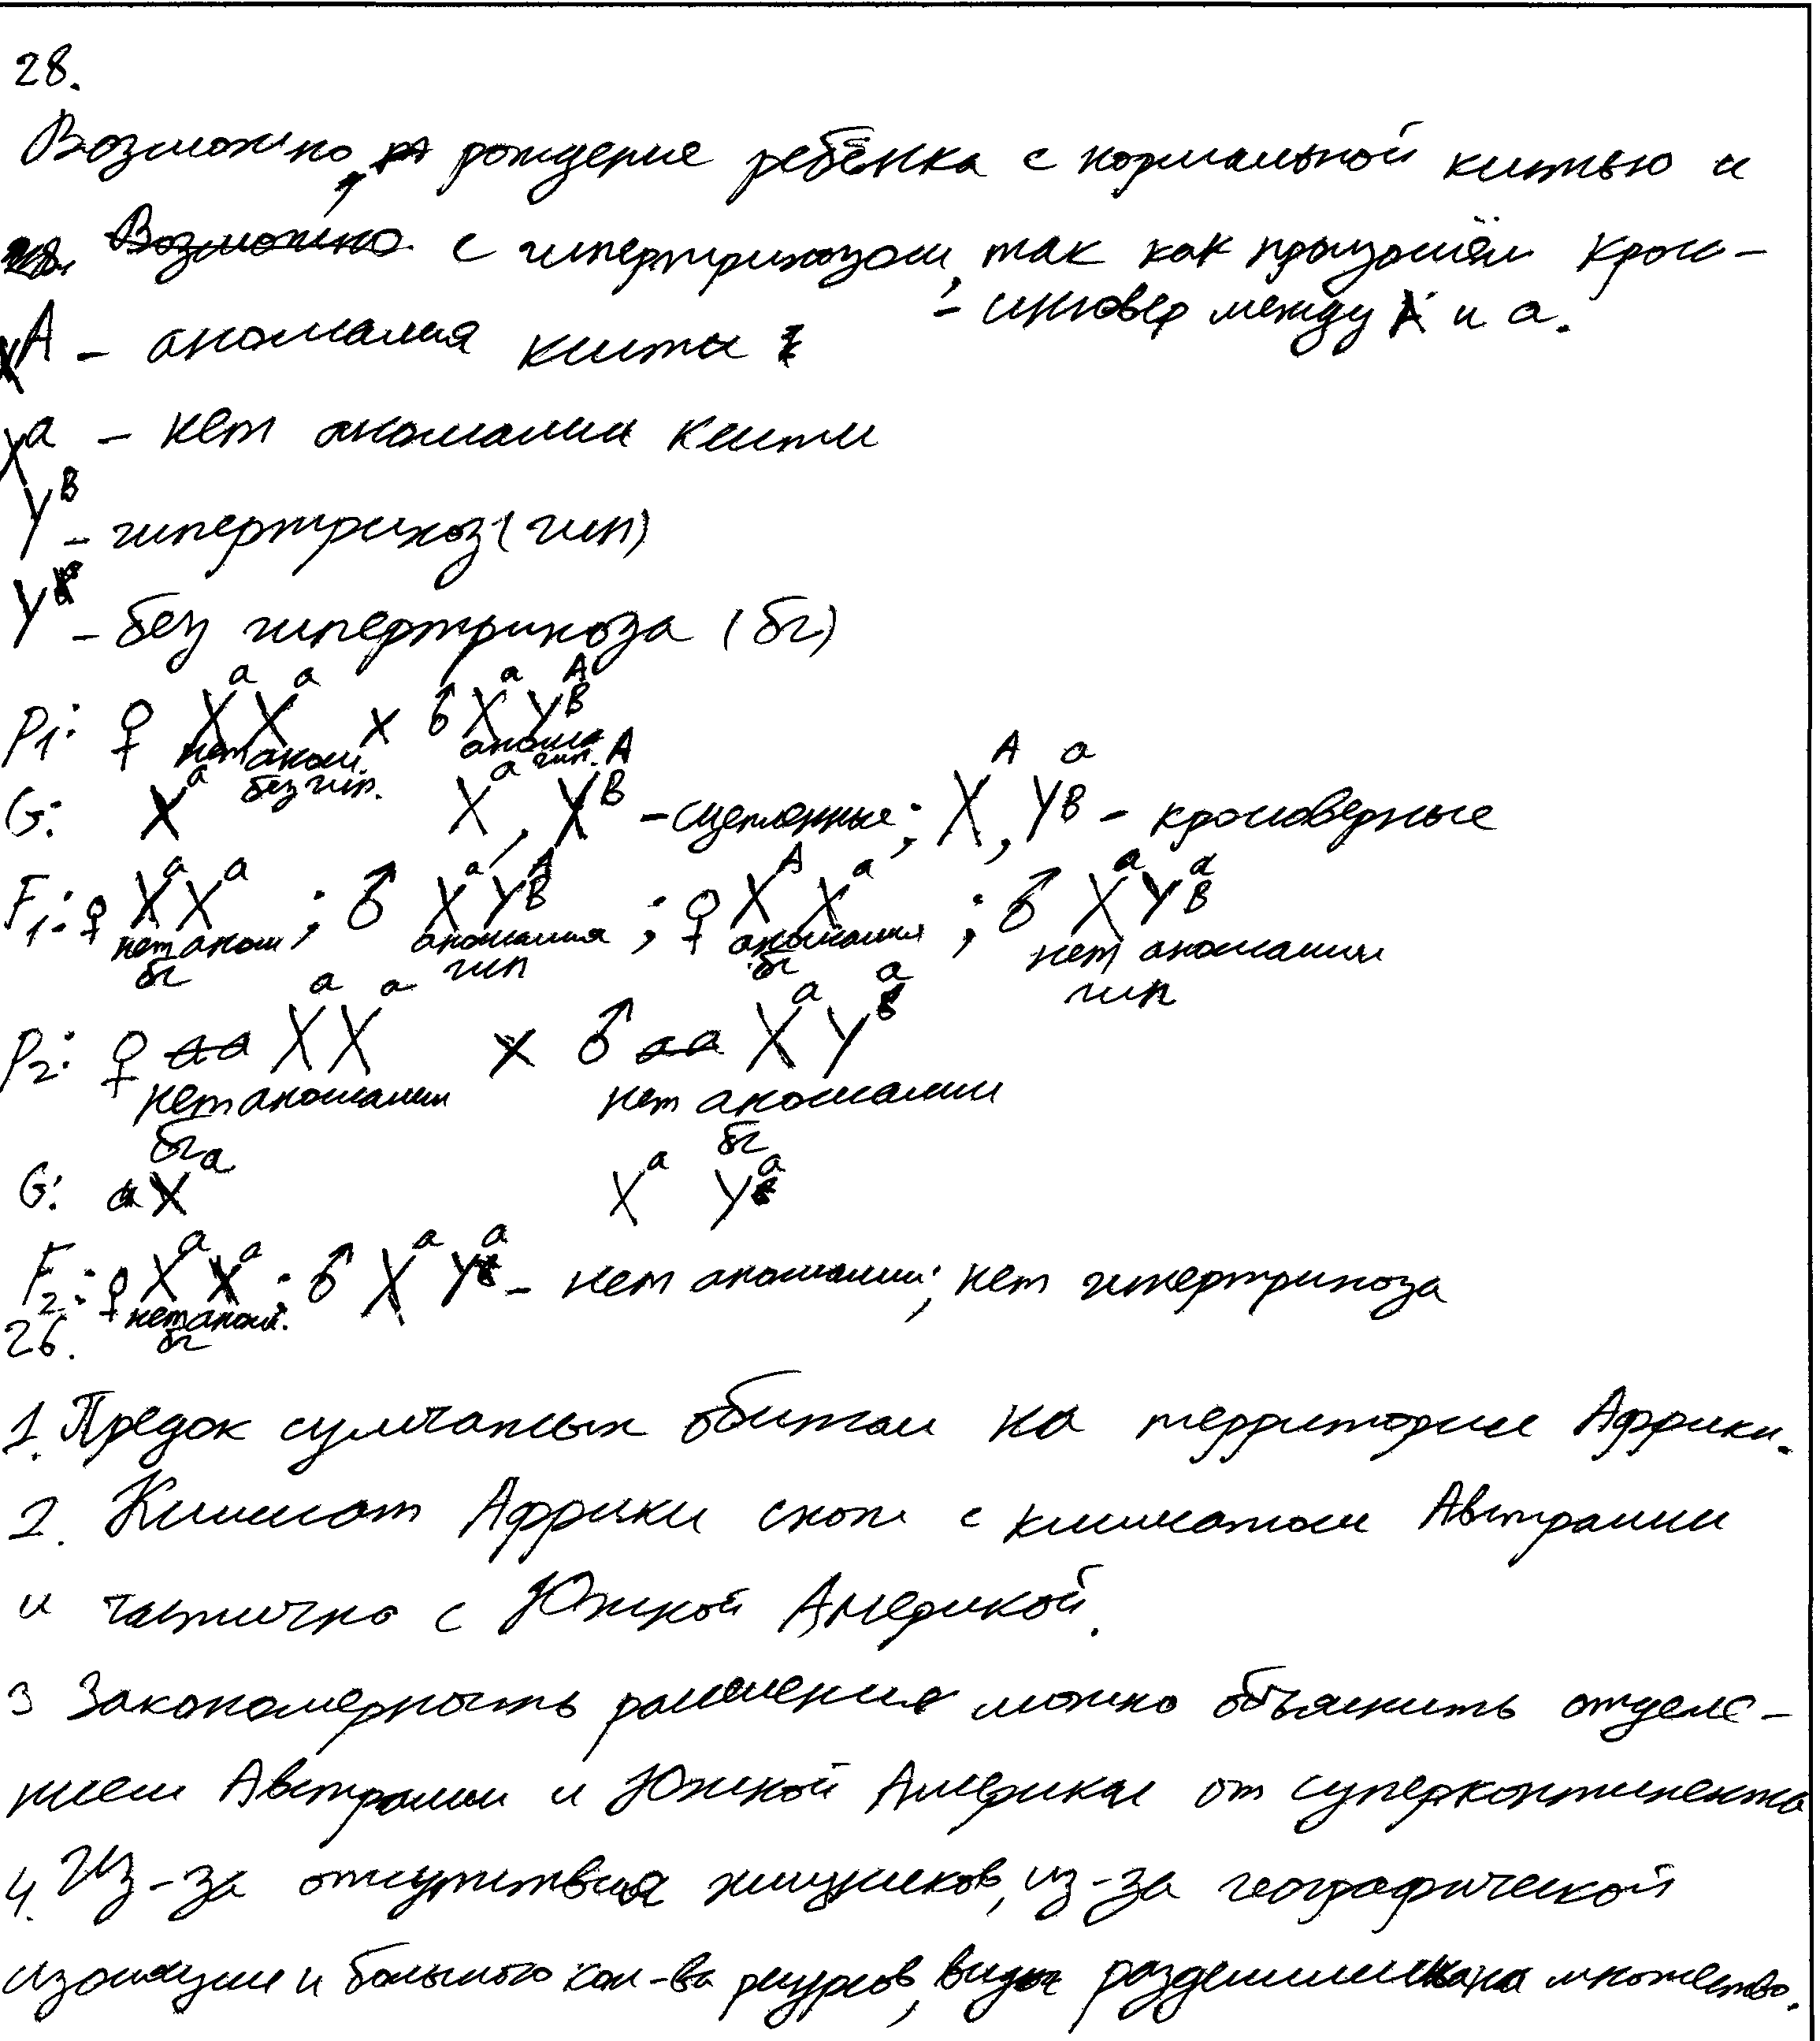 28.
Возможно, рождение ребёнка с нормальной китью и
с гипертрихозом, так как произошёл крос-
- синговер между A и a.
X^A - аномалия кисти
X^a - нет аномалии кисти
Y^B - гипертрихоз (гип)
Y^b - без гипертрихоза (бг)
P1: ♀ X^a X^a x ♂ X^a Y^AB
нет аном. без гип. аномал. гип.
G: X^a X^a, Y^AB - сцепленные; X^A, Y^aB - кроссоверные
F1: ♀ X^a X^a ; ♂ X^a Y^AB ; ♀ X^A X^a ; ♂ X^a Y^aB
нет аном бг аномалия гип аномалия бг нет аномалии гип
P2: ♀ X^a X^a x ♂ X^a Y^ab
нет аномалии нет аномалии
бг бг
G: X^a X^a Y^ab
F2: ♀ X^a X^a ; ♂ X^a Y^ab - нет аномалии; нет гипертрихоза
нет аном. бг
26.
1. Предок сумчатых обитал на территории Африки.
2. Климат Африки схож с климатом Австралии
и частично с Южной Америкой.
3 Закономерность расселения можно объяснить отделе-
нием Австралии и Южной Америки от суперконтинента
4. Из-за отсутствия хищников, из-за географической
изоляции и большого кол-ва ресурсов, виды разделились на множество.